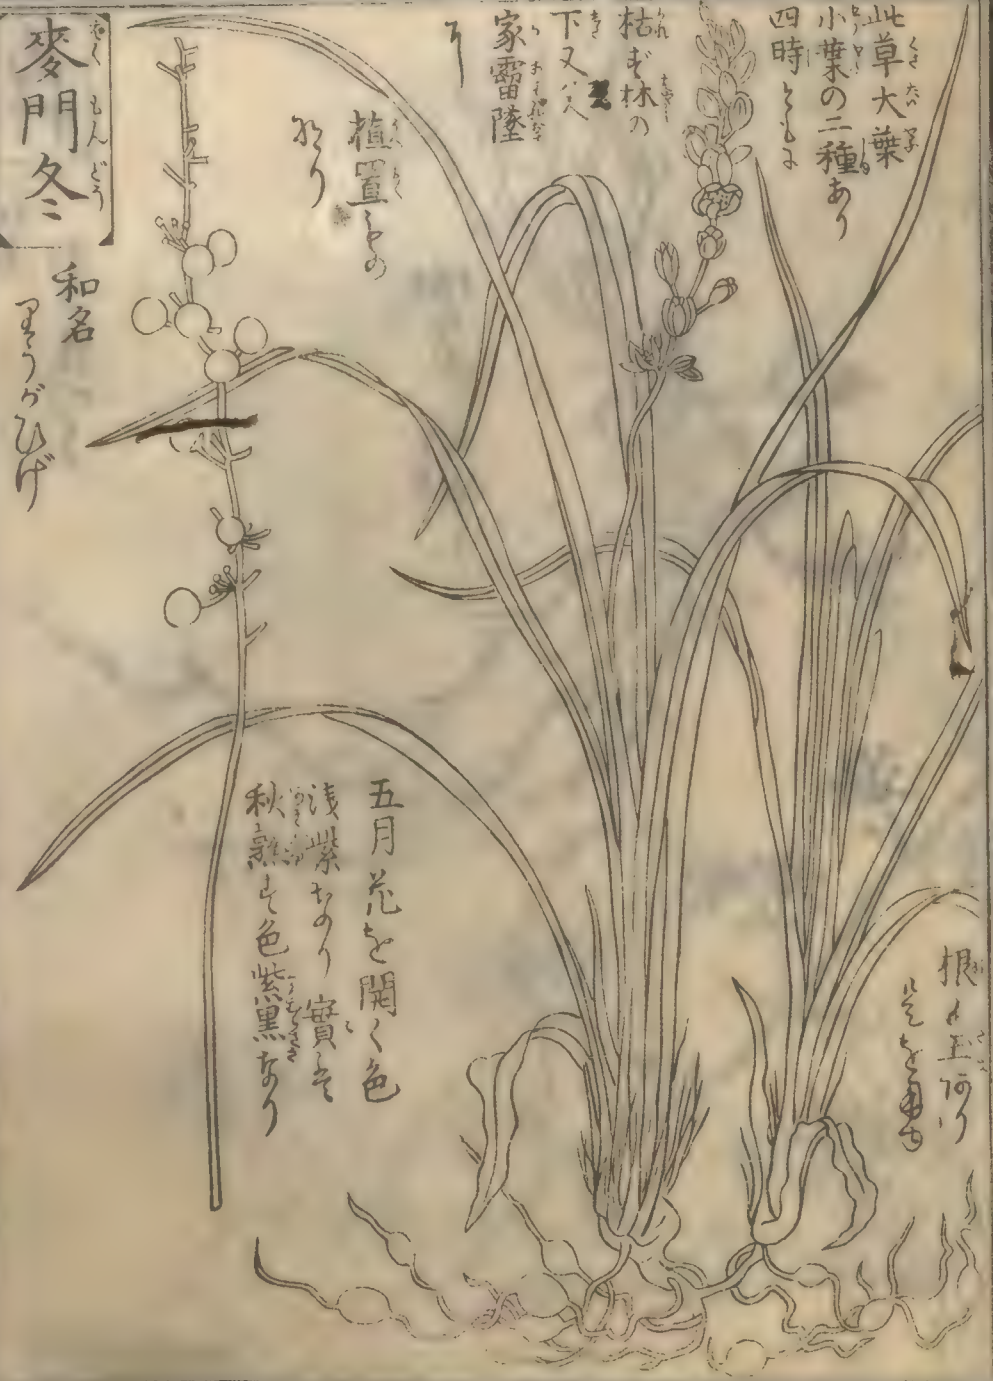 此草大葉
小葉の二種あり
四時ともに
枯ず林の
下又ハ
家雷墜
植置もの
なり
麥門冬
ばくもんどう
和名
りうがひげ
五月花を開く色
浅紫なり實は
秋熟す色紫黒なり
根に玉あり
是を用ゆ